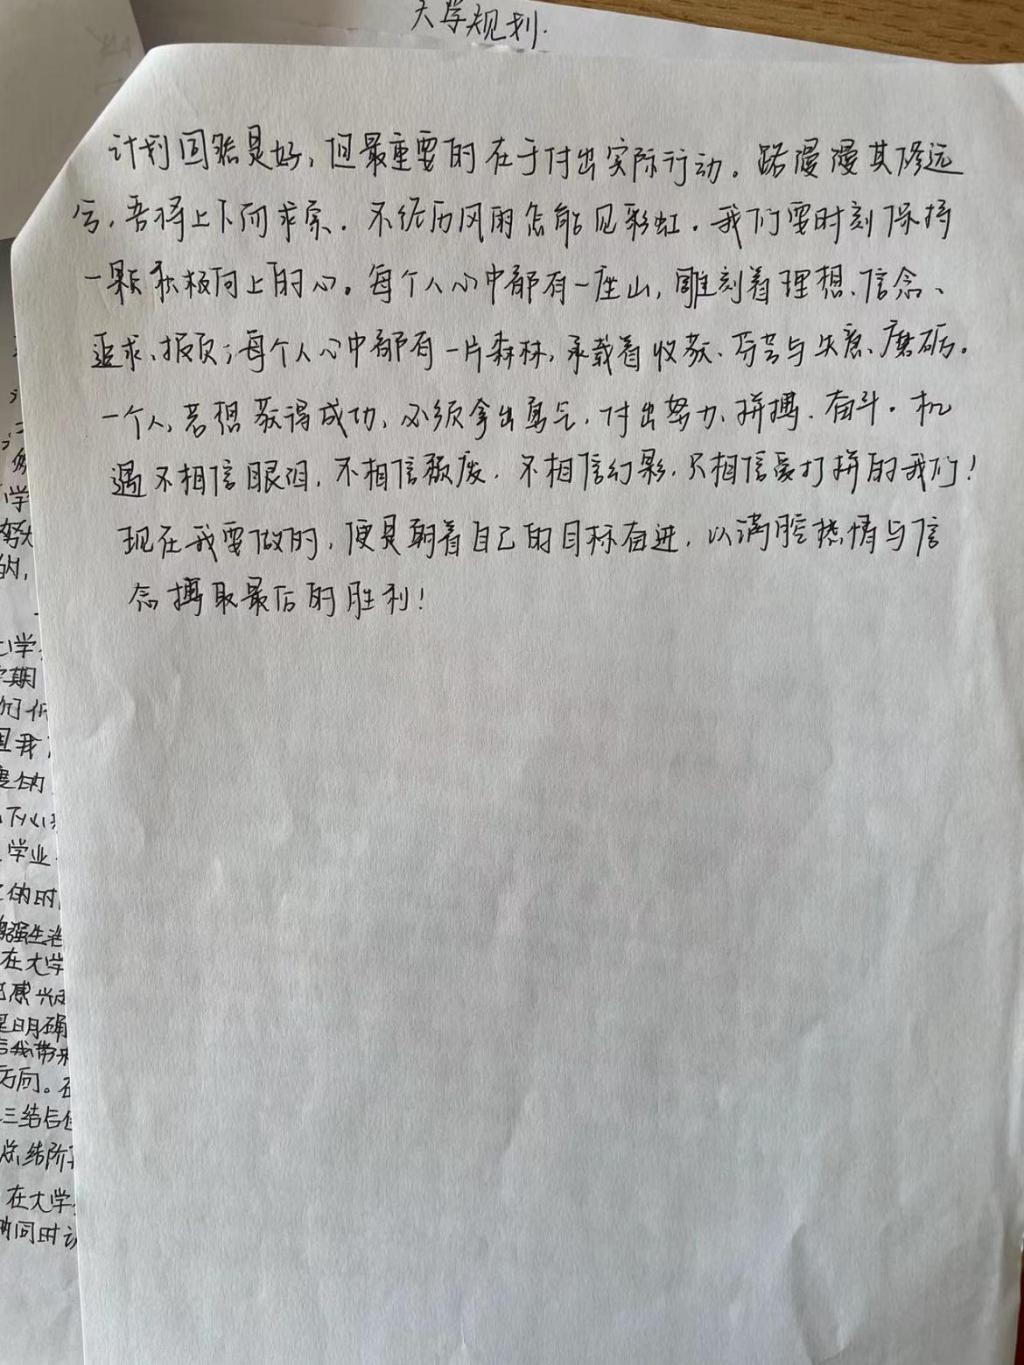 大学规划.
计划固然是好，但最重要的在于付出实际行动。路漫漫其修远
兮，吾将上下而求索．不经历风雨怎能见彩虹．我们要时刻保持
一颗积极向上的心。每个人心中都有一座山，雕刻着理想、信念、
追求、抱负；每个人心中都有一片森林，承载着收获、芬芳与失意、磨砺。
一个人，若想获得成功，必须拿出勇气，付出努力、拼搏、奋斗．机
遇不相信眼泪，不相信颓废．不相信幻影，只相信爱打拼的我们！
现在我要做的，便是朝着自己的目标奋进，以满腔热情与信
念搏取最后的胜利！
学
的，
学期
学业
的时
增强生活
在大学
感兴
是明确
方向。在
总结阶
在大学
的同时